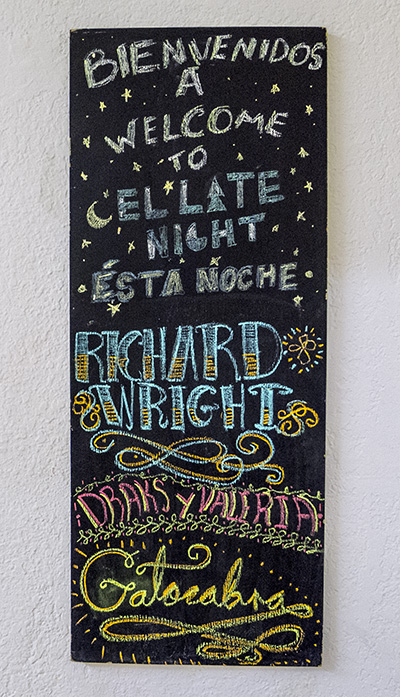 BIENVENIDOS
A
WELCOME
TO
EL LATE
NIGHT
ÉSTA NOCHE
RICHARD
WRIGHT
¡DRAKS Y VALERIA!
Gatocabra